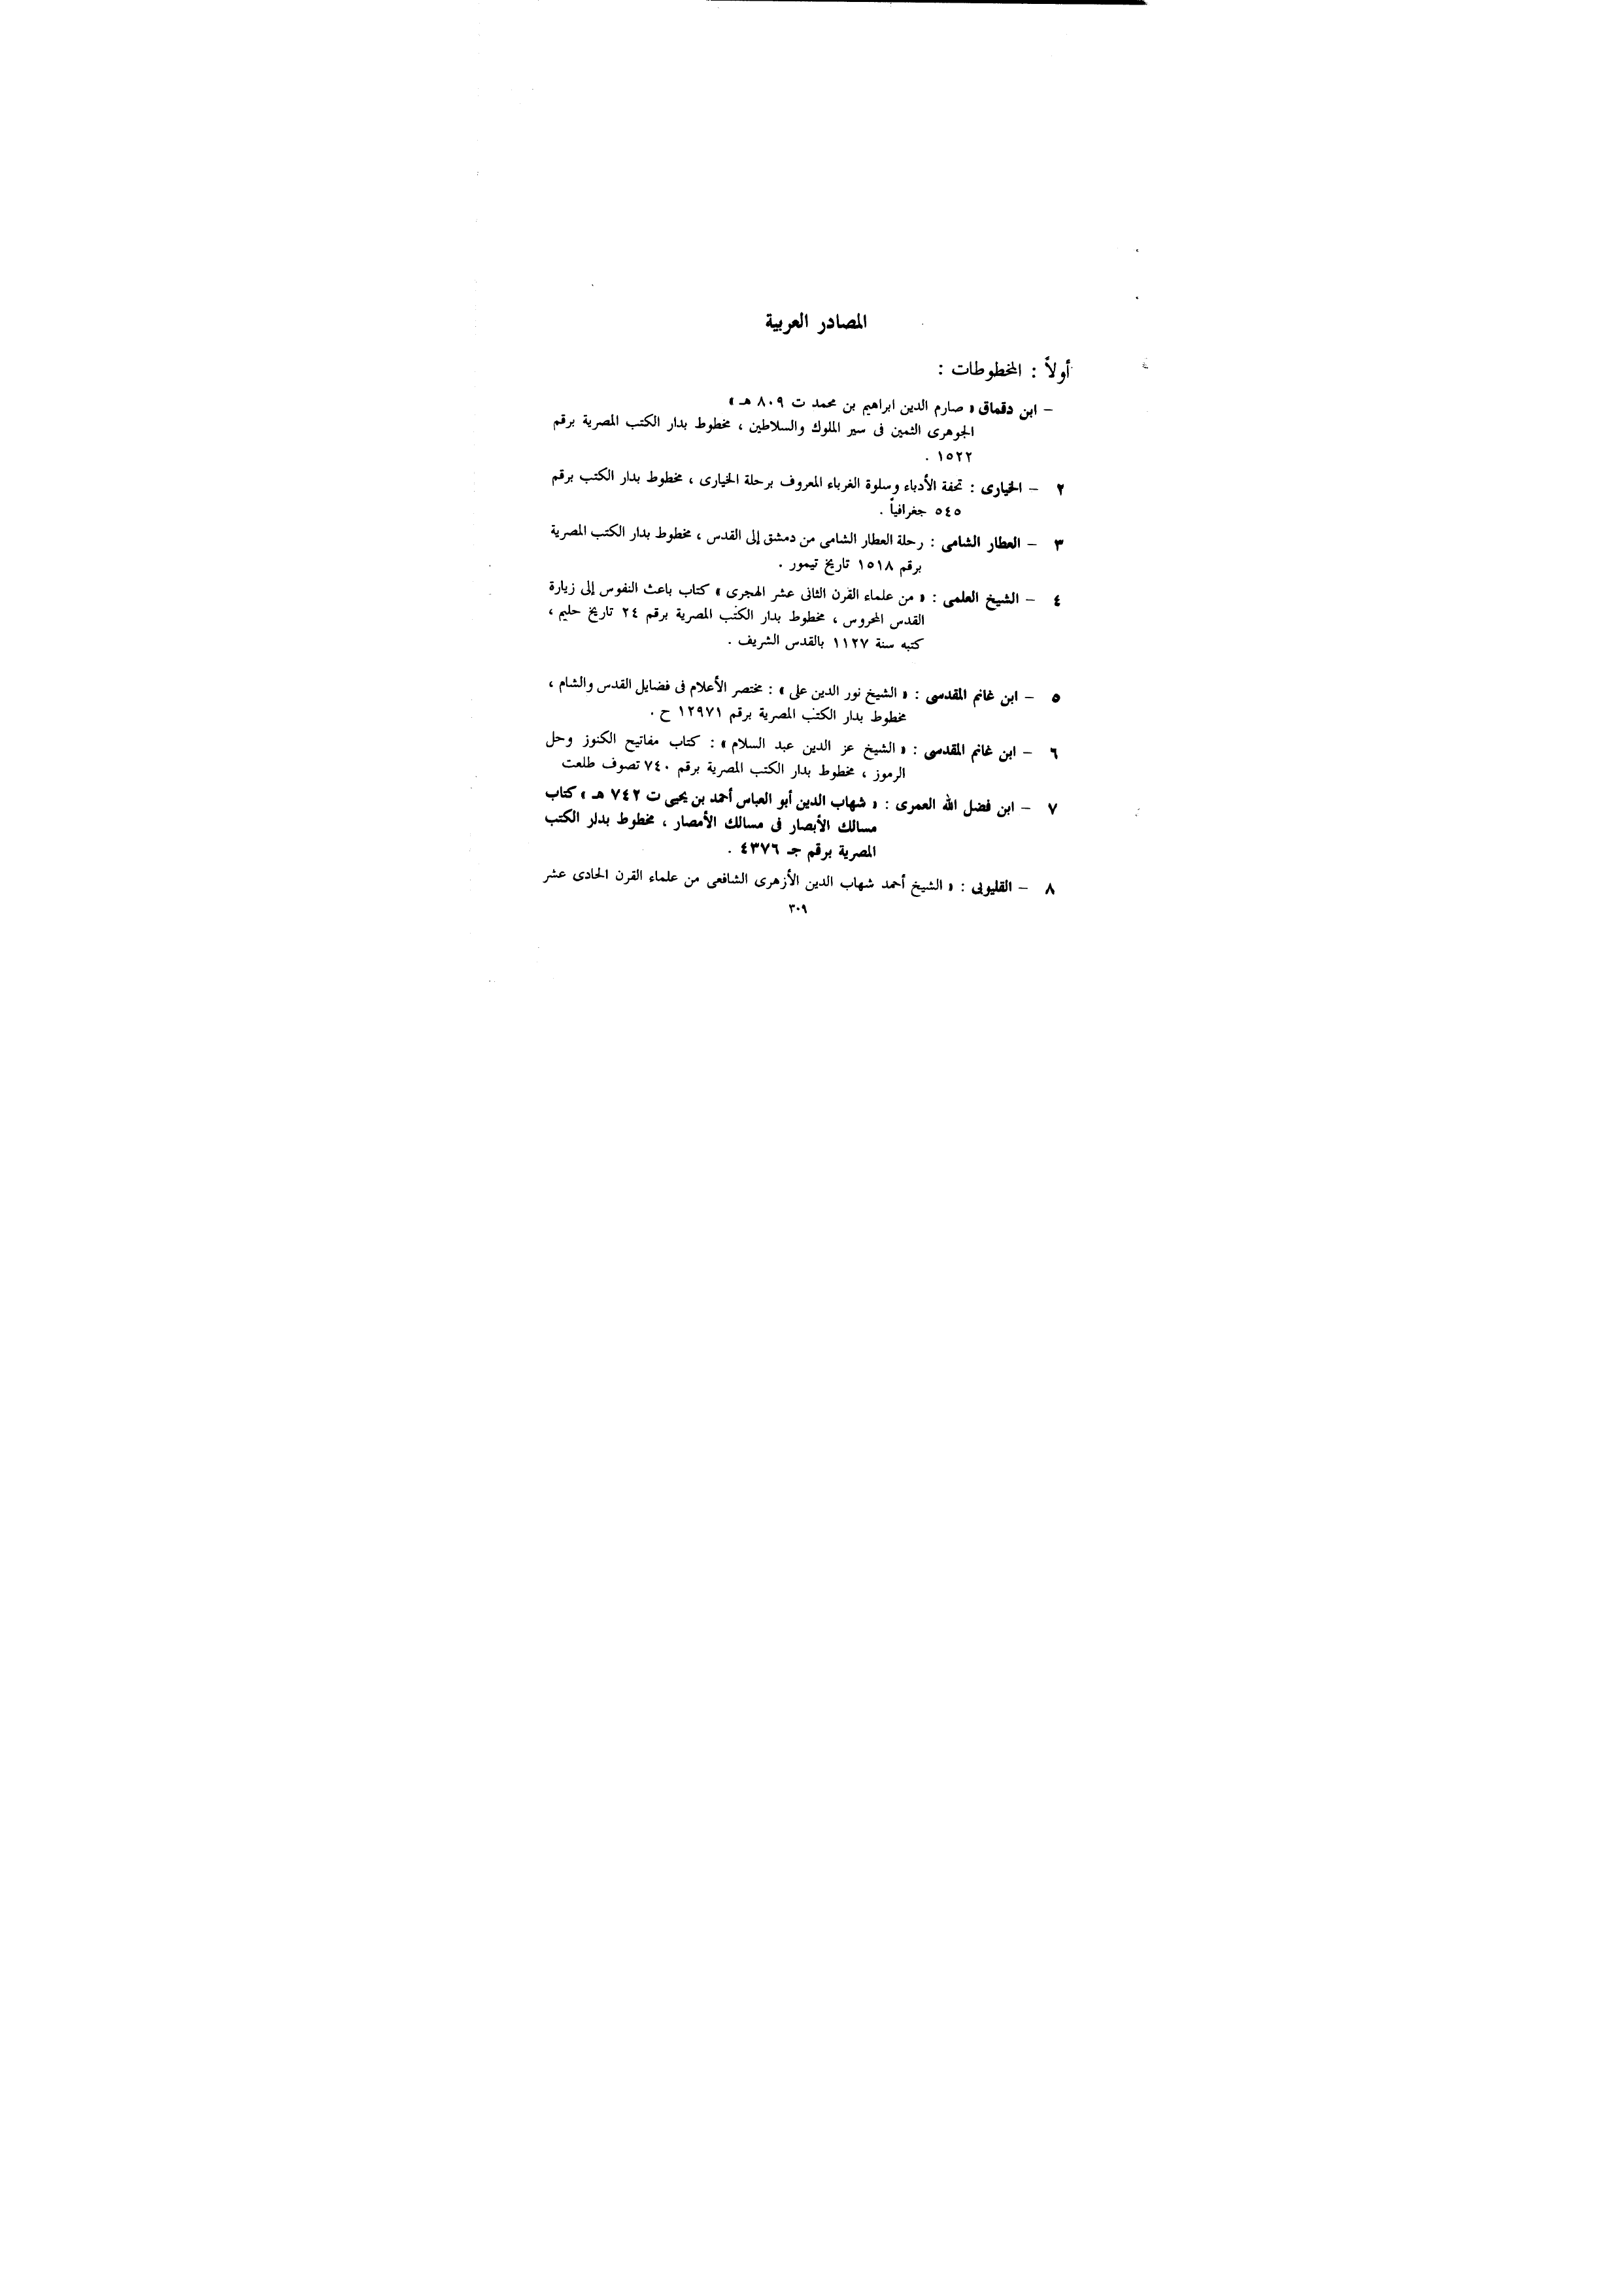 المصادر العربية
أولاً : المخطوطات :
– ابن دقماق « صارم الدين ابراهيم بن محمد ت ٨٠٩ هـ »
الجوهرى الثمين فى سير الملوك والسلاطين ، مخطوط بدار الكتب المصرية برقم
١٥٢٢ .
٢ – الخيارى : تحفة الأدباء وسلوة الغرباء المعروف برحلة الخيارى ، مخطوط بدار الكتب برقم
٥٤٥ جغرافياً .
٣ – العطار الشامى : رحلة العطار الشامى من دمشق إلى القدس ، مخطوط بدار الكتب المصرية
برقم ١٥١٨ تاريخ تيمور .
٤ – الشيخ العلمى : « من علماء القرن الثانى عشر الهجرى » كتاب باعث النفوس إلى زيارة
القدس المحروس ، مخطوط بدار الكتب المصرية برقم ٢٤ تاريخ حليم ،
كتبه سنة ١١٢٧ بالقدس الشريف .
٥ – ابن غانم المقدسى : « الشيخ نور الدين على » : مختصر الأعلام فى فضايل القدس والشام ،
مخطوط بدار الكتب المصرية برقم ١٢٩٧١ ح .
٦ – ابن غانم المقدسى : « الشيخ عز الدين عبد السلام » : كتاب مفاتيح الكنوز وحل
الرموز ، مخطوط بدار الكتب المصرية برقم ٧٤٠ تصوف طلعت
٧ – ابن فضل الله العمرى : « شهاب الدين أبو العباس أحمد بن يحيى ت ٧٤٢ هـ » كتاب
مسالك الأبصار فى مسالك الأمصار ، مخطوط بدلر الكتب
المصرية برقم جـ ٤٣٧٦ .
٨ – القليوبى : « الشيخ أحمد شهاب الدين الأزهرى الشافعى من علماء القرن الحادى عشر
٣٠٩